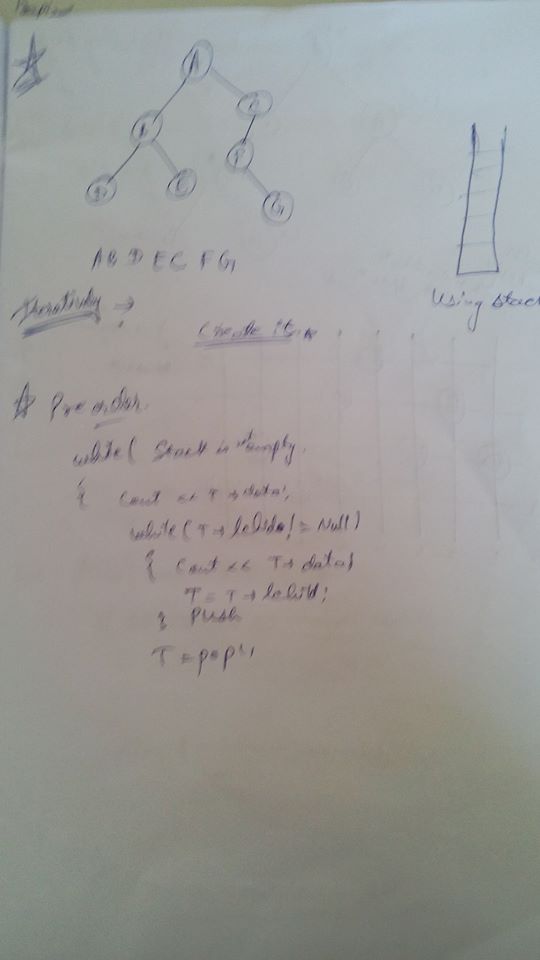 A
B
D
E
F
G
A B D E C F G
Iteratively →
Using stac
Create it
Preorder.
while( Stack is not empty.
{ Cout << T → data;
while( T → lchild != Null)
{ Cout << T → data;
T = T → lchild;
} Push
T = pop();